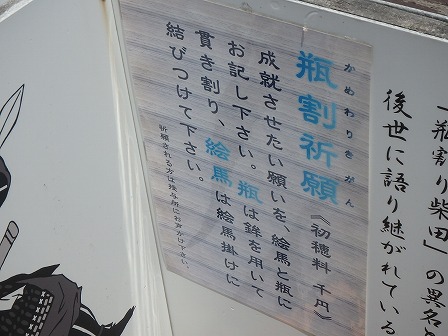 「瓶割り柴田」の異名
後世に語り継がれている
かめわりきがん
瓶割祈願《初穂料 千円》
成就させたい願いを、絵馬と瓶に
お記し下さい。瓶は鉾を用いて
貫き割り、絵馬は絵馬掛けに
結びつけて下さい。
祈願される方は授与所にお声がけ下さい。